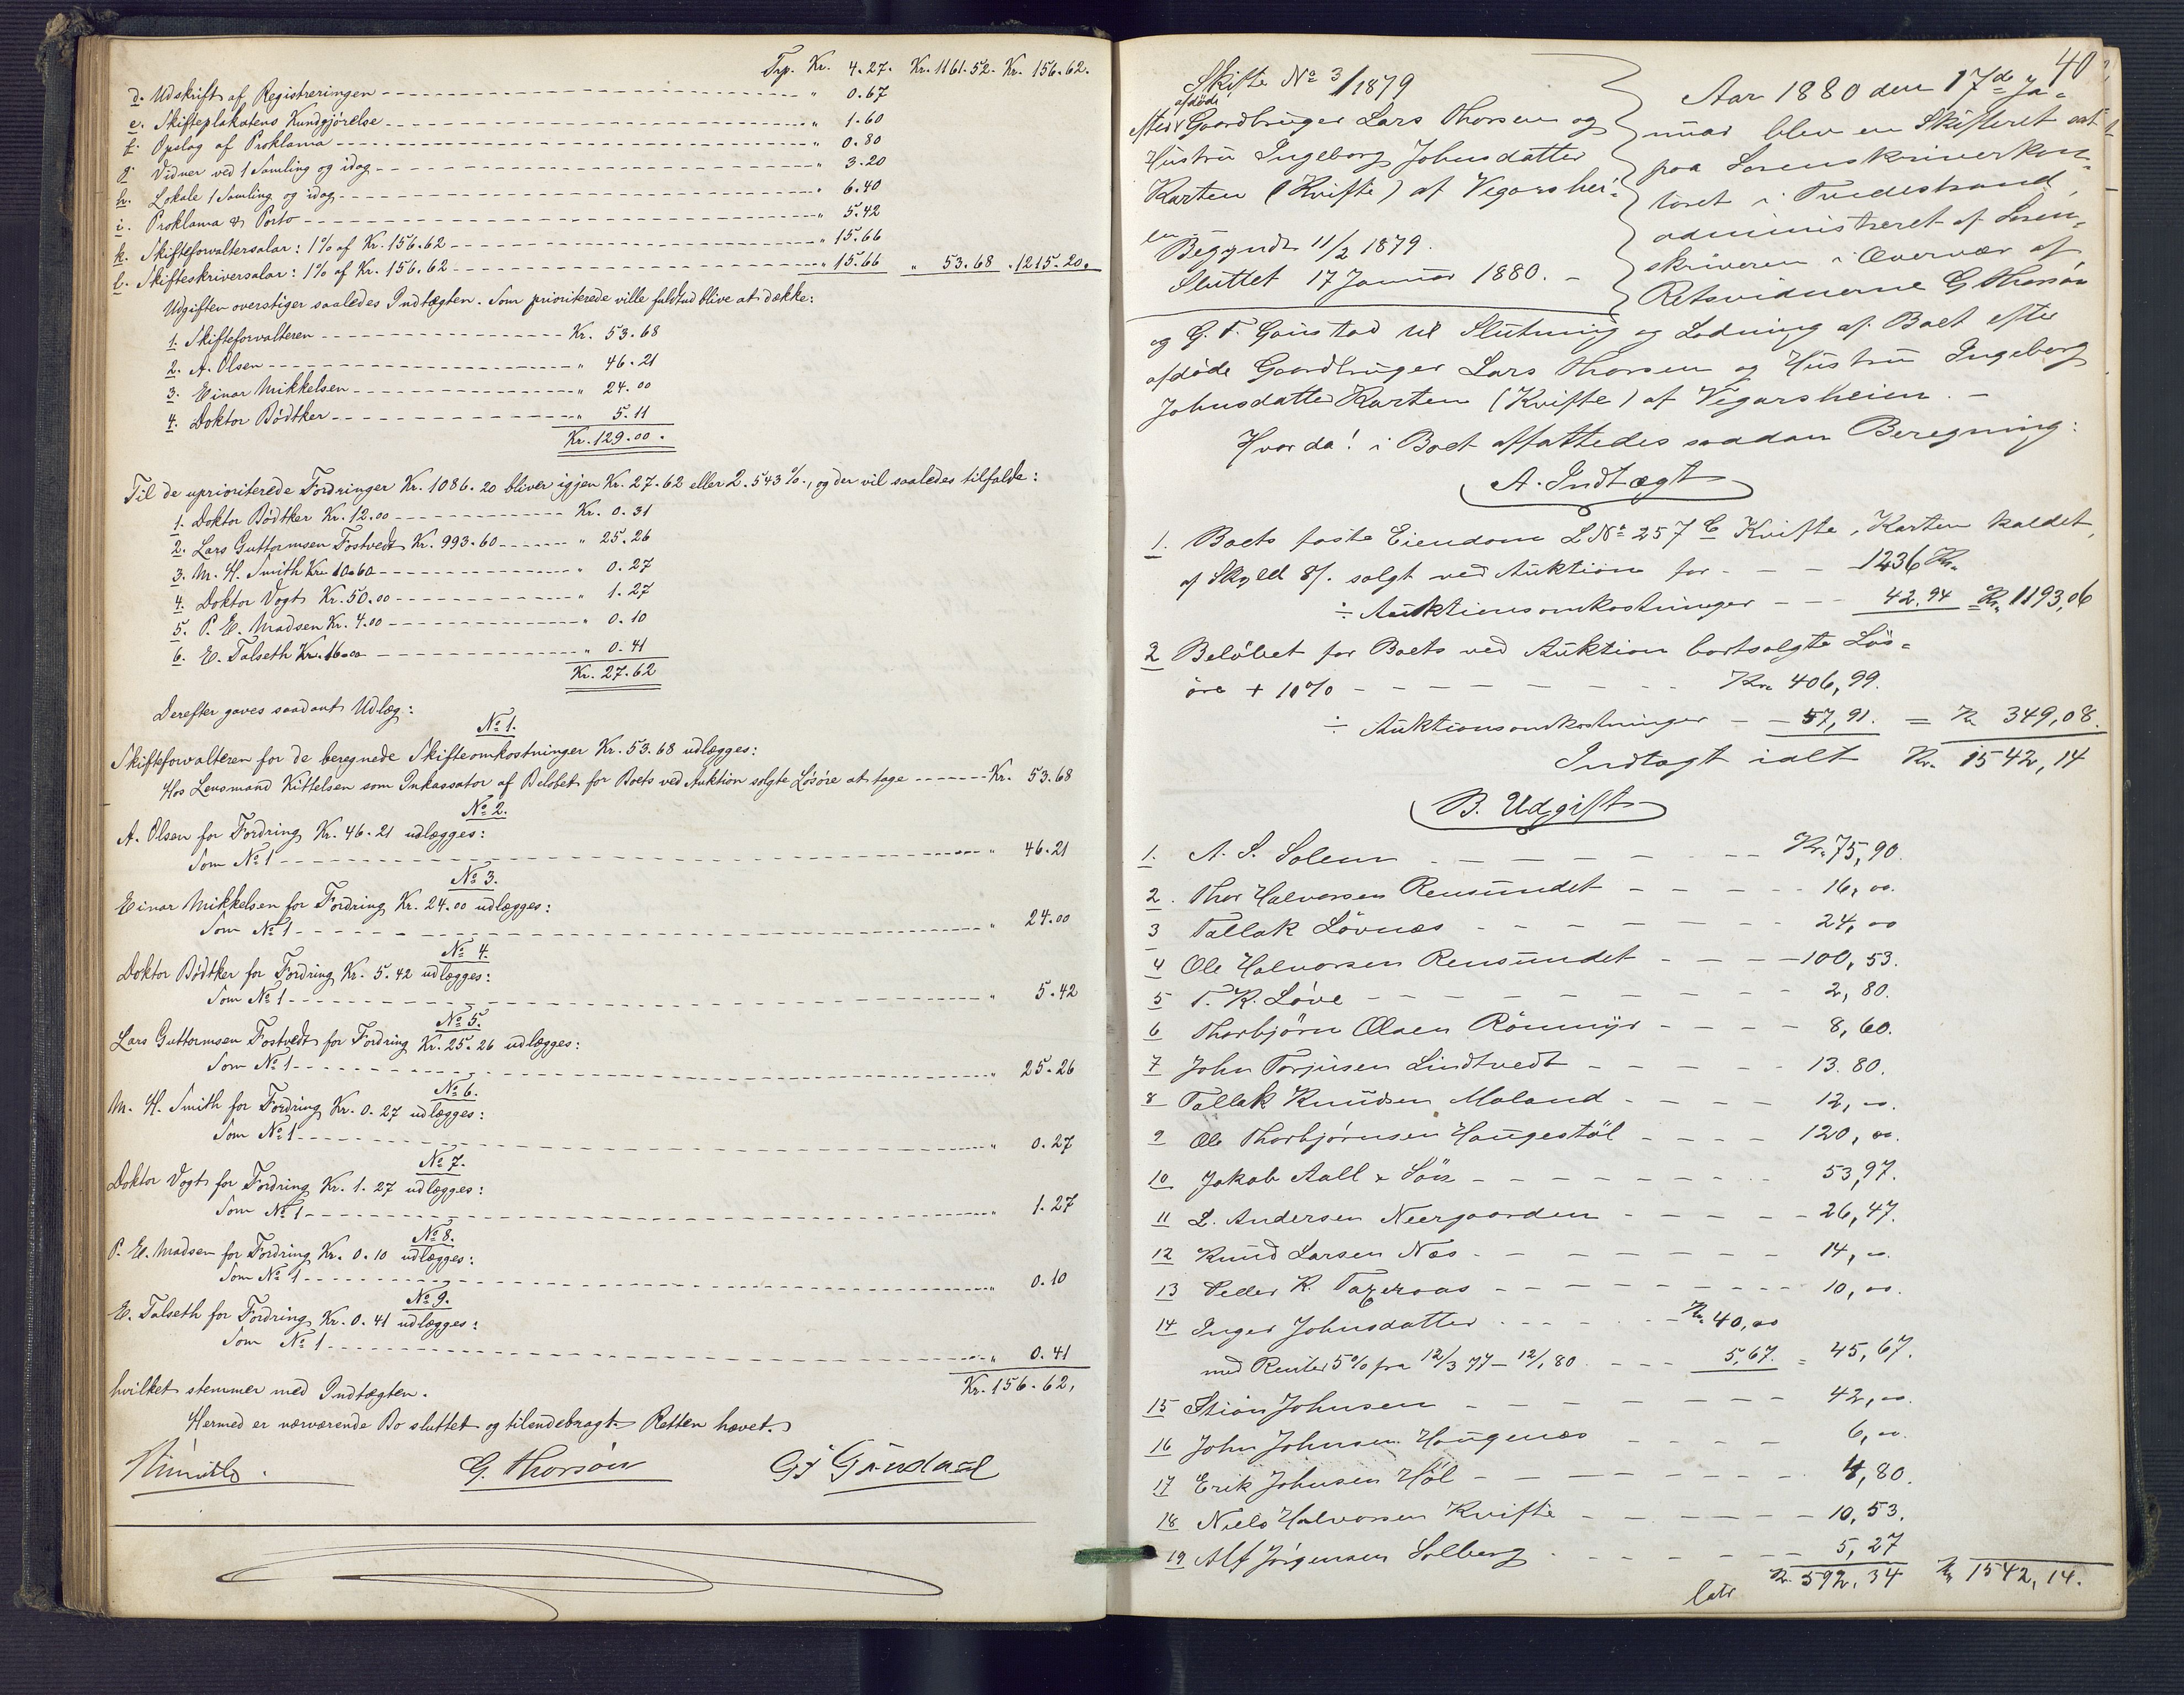 Trp. Kr. 4.27. Kr. 1161.52. Kr. 156.62.
d. Udskrift af Registreringen " 0.67
e. Skifteplakatens Kundgjørelse " 1.60
f. Opslag af Proklama " 0.80
g. Vidner ved 1 Samling og idag " 3.20
h. Lokale 1 Samling og idag " 6.40
i. Proklama & Porto " 5.42
k. Skifteforvaltersalar: 1% af Kr. 156.62 " 15.66
l. Skifteskriversalar: 1% af Kr. 156.62 " 15.66 " 53.68 " 1215.20.
Udgiften overstiger saaledes Indtægten. Som prioriterede ville fuldtud blive at dække:
1. Skifteforvalteren Kr. 53.68
2. A. Olsen " 46.21
3. Einar Mikkelsen " 24.00
4. Doktor Bødtker " 5.11
Kr. 129.00.
Til de uprioriterede Fordringer Kr. 1086.20 bliver igjen Kr. 27.62 eller 2.543%, og der vil saaledes tilfalde:
1. Doktor Bødtker Kr. 12.00 Kr. 0.31
2. Lars Guttormsen Fostvedt Kr. 993.60 " 25.26
3. M. H. Smith Kr. 10.60 " 0.27
4. Doktor Vogt Kr. 50.00 " 1.27
5. P. E. Madsen Kr. 4.00 " 0.10
6. E. Talseth Kr. 16.00 " 0.41
Kr. 27.62
Derefter gaves saadant Udlæg:
No 1.
Skifteforvalteren for de beregnede Skifteomkostninger Kr. 53.68 udlægges:
Hos Lensmand Kittelsen som Inkassator af Beløbet for Boets ved Auktion solgte Løsøre at tage Kr. 53.68
No 2.
A. Olsen for Fordring Kr. 46.21 udlægges:
Som No 1 " 46.21
No 3.
Einar Mikkelsen for Fordring Kr. 24.00 udlægges:
Som No 1 " 24.00
No 4.
Doktor Bødtker for Fordring Kr. 5.42 udlægges:
Som No 1 " 5.42
No 5.
Lars Guttormsen Fostvedt for Fordring Kr. 25.26 udlægges:
Som No 1 " 25.26
No 6.
M. H. Smith for Fordring Kr. 0.27 udlægges:
Som No 1 " 0.27
No 7.
Doktor Vogt for Fordring Kr. 1.27 udlægges:
Som No 1 " 1.27
No 8.
P. E. Madsen for Fordring Kr. 0.10 udlægges:
Som No 1 " 0.10
No 9.
E. Talseth for Fordring Kr. 0.41 udlægges:
Som No 1 " 0.41
hvilket stemmer med Indtægten. Kr. 156.62,
Hermed er nærværende Bo sluttet og tilendebragt. Retten hævet.
G. Thorsøn
40
Skifte No 3/1879
afdøde
efter Gaardbruger Lars Thorsen og
Hustru Ingeborg Johnsdatter
Karten (Kvifte) af Vegarshei-
en
Begyndt 11/2 1879.
Sluttet 17 Januar 1880. -
Aar 1880 den 17de Ja-
nuar blev en Skifteret sat
paa Sorenskriverkon-
toret i Tvedestrand,
administreret af Soren-
skriveren i Overvær af
Retsvidnerne G Thorsøn
og G. T. Goustad til Slutning og Lodning af Boet efter
afdøde Gaardbruger Lars Thorsen og Hustru Ingeborg
Johnsdatter Karten (Kvifte) af Vegarsheien. -
Hvorda! i Boet affattedes saadan Beregning:
A. Indtægt
1. Boets faste Eiendom LNo 257 C Kvifte, Karten kaldet,
af Skyld 8/. solgt ved Auktion for - - - 1236 Kr.
÷ Auktionsomkostninger - - 42,94 Kr. 1193,06
2 Beløbet for Boets ved Auktion bortsolgte Løs-
øre + 10% - - - Kr. 406,99.
÷ Auktionsomkostninger - - 57,91. = Kr 349,08.
Indtægt ialt Kr. 1542,14
B. Udgift
1. A. S. Solem Kr. 75,90.
2. Thor Halvorsen Rensundet 16,00.
3 Tallak Løvnæs 24,00
4 Ole Halvorsen Rensundet 100,53.
5 T. K. Løve 2,80.
6 Thorbjørn Olsen Rønmyr 8,60.
7 John Torjusen Lindtvedt 13.80.
8 Tallak Knudsen Moland 12,00.
9 Ole Thorbjørnsen Haugestøl 120,00.
10 Jakob Aall & Søn 53,97.
11 L. Andersen Neergaarden 26,47.
12 Knud Larsen Næs 14,00.
13 Peder K. 10,00.
14 Inger Johnsdatter Kr. 40,00
med Renter 5% fra 12/3 77 - 12/1 80. 5,67. = 45,67.
15 Stian Johnsen 42,00.
16 John Johnsen Haugenæs 6,00.
17 Erik Johnsen Høl 4,80.
18 Niels Halvorsen Kvifte 10,53.
19 Alf Jørgensen Solberg 5,27
latr Kr. 592,34 Kr 1542,14.